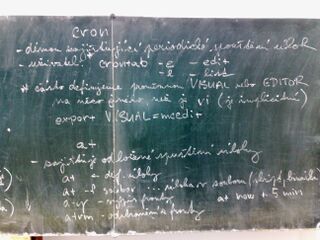 cron
- démon zajišťující periodické spouštění úloh
- uživatel: crontab -e - edit
-l - list
* často definujeme proměnnou VISUAL nebo EDITOR
na něco jiného, než je vi (je implicitní)
export VISUAL=mcedit
at
- zajišťuje odložené spuštění úlohy
at - def. úlohy
at -f soubor ... úloha v souboru
atq - výpis fronty at now + 5 min
atrm - odstranění z fronty